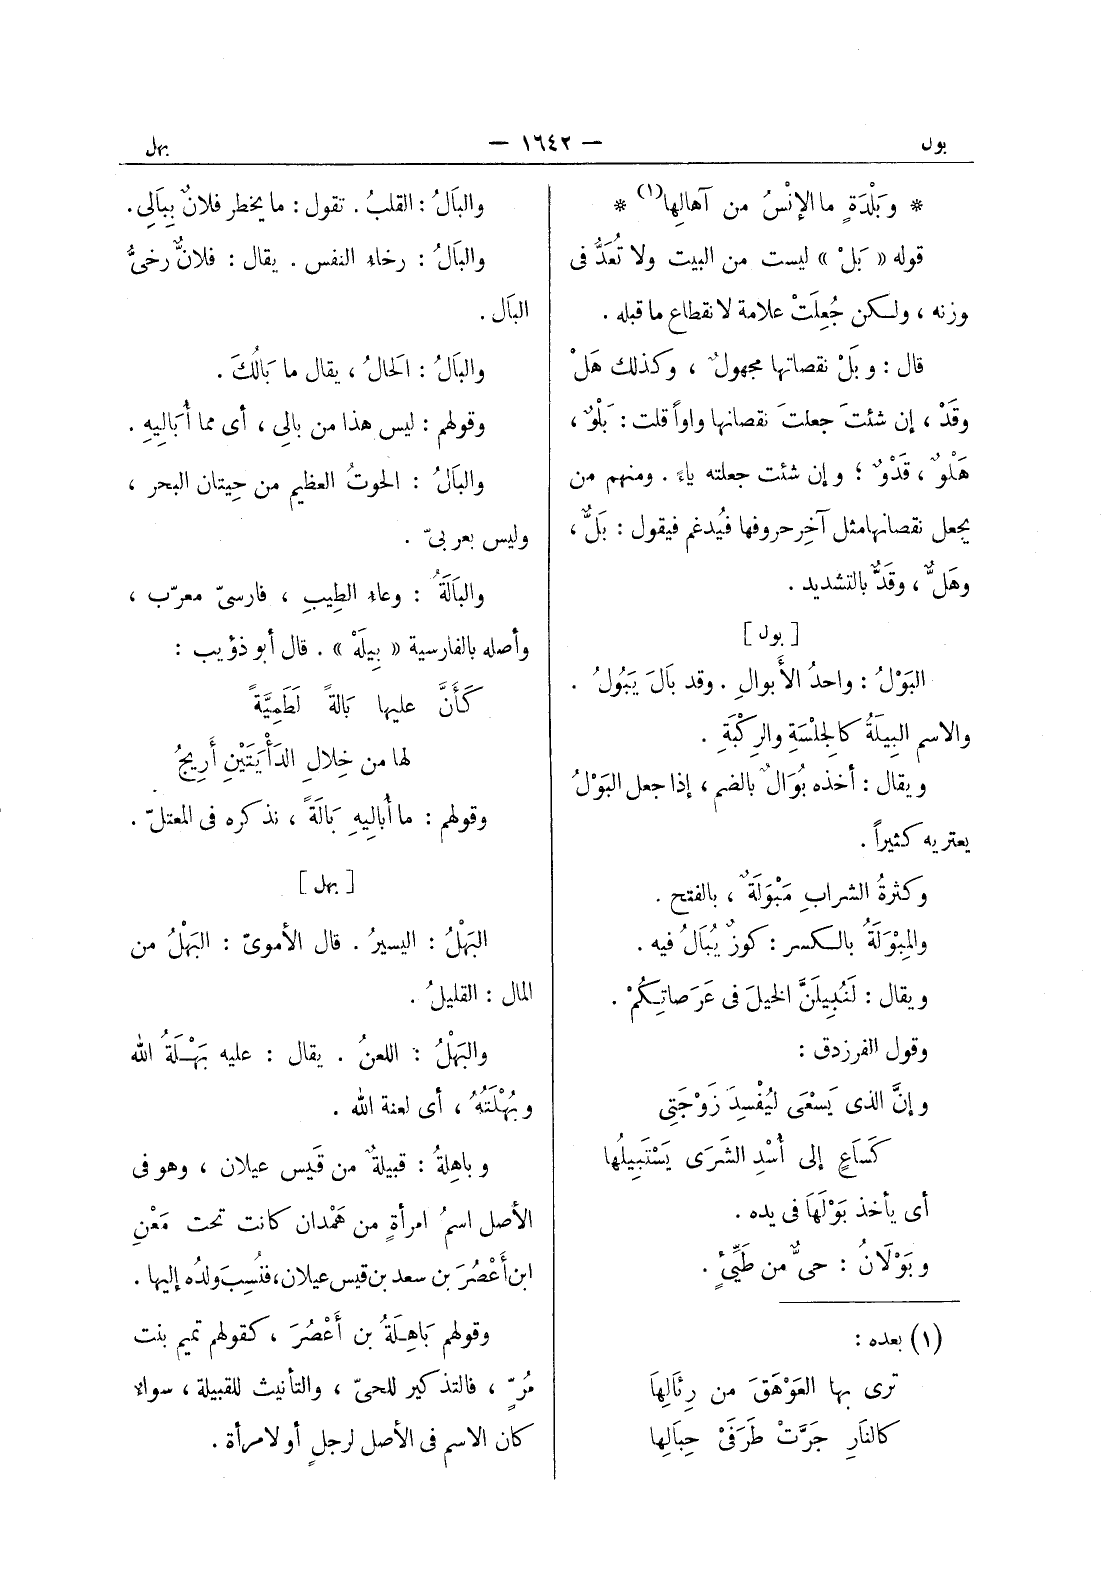 بول
— ١٦٤٢ —
بهل
* وَبَلْدَةٍ ما الإنْسُ من آهالِها(١) *
قوله « بَلْ » ليست من البيت ولا تُعَدُّ فى
وزنه ، ولكن جُعِلَتْ علامة لانقطاع ما قبله .
قال : وبَلْ نقصانها مجهولٌ ، وكذلك هَلْ
وقَدْ ، إن شئتَ جعلتَ نقصانها واواً قلت : بَلْوٌ ،
هَلْوٌ ، قَدْوٌ ؛ وإن شئت جعلته ياءً . ومنهم من
يجعل نقصانها مثل آخِر حروفها فيُدغم فيقول : بَلٌّ ،
وهَلٌّ ، وقَدٌّ بالتشديد .
[ بول ]
البَوْلُ : واحدُ الأَبوالِ . وقد بَالَ يَبُولُ .
والاسم البِيلَةُ كالجِلْسَةِ والرِكْبَةِ .
ويقال : أخذه بُوَالٌ بالضم ، إذا جعل البَوْلُ
يعتريه كثيراً .
وكثرةُ الشرابِ مَبْوَلَةٌ ، بالفتح .
والمِبْوَلَةُ بالكسر : كوزٌ يُبَالُ فيه .
ويقال : لَنُبِيلَنَّ الخيلَ فى عَرَصاتِكُمْ .
وقول الفرزدق :
وإنَّ الذى يَسْعَى ليُفْسِدَ زَوْجَتِى
كَسَاعٍ إلى أُسْدِ الشَرَى يَسْتَبِيلُها
أى يأخذ بَوْلَهَا فى يده .
وبَوْلَانُ : حىٌّ من طَيِّئٍ .
(١) بعده :
ترى بها العَوْهَقَ من رِئَالِهَا
كالنَارِ جَرَّتْ طَرَفَىْ حِبَالِها
والبَالُ : القلبُ . تقول : ما يخطر فلانٌ بِبَالِى .
والبَالُ : رخاء النفس . يقال : فلانٌ رخىُّ
البَال .
والبَالُ : الحَالُ ، يقال ما بَالُكَ .
وقولهم : ليس هذا من بالِى ، أى مما أُبَالِيهِ .
والبَالُ : الحوتُ العظيم من حِيتان البحر ،
وليس بعربىّ .
والبَالَةُ : وعاء الطِيبِ ، فارسىّ معرّب ،
وأصله بالفارسية « بِيلَهْ » . قال أبو ذؤيب :
كَأَنَّ عليها بَالةً لَطَمِيَّةً
لها من خِلالِ الدَأْيَتَيْنِ أَرِيجُ
وقولهم : ما أُبالِيهِ بَالَةً ، نذكره فى المعتلّ .
[ بهل ]
البَهْلُ : اليسيرُ . قال الأموىّ : البَهْلُ من
المال : القليلُ .
والبَهْلُ : اللعنُ . يقال : عليه بَهْلَةُ الله
وبُهْلَتُهُ ، أى لعنة الله .
وباهِلةُ : قبيلةٌ من قَيس عيلان ، وهو فى
الأصل اسمُ امرأةٍ من هَمْدان كانت تحت مَعْنِ
ابن أَعْصُرَ بن سعد بن قيس عيلان، فنُسِبَ ولدُه إليها .
وقولهم بَاهِلَةُ بن أَعْصُرَ ، كقولهم تميم بنت
مُرّ ٍ ، فالتذكير للحىّ ، والتأنيث للقبيلة ، سواء
كان الاسم فى الأصل لرجلٍ أو لامرأة .